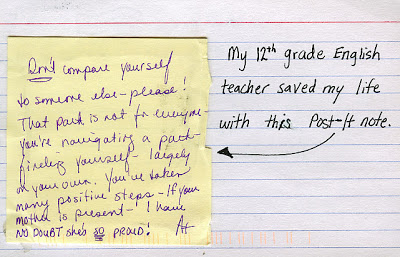 Don't compare yourself
to someone else - please!
That path is not for everyone
you're navigating a path -
finding yourself - largely
on your own. You've taken
many positive steps - If your
mother is present - I have
NO DOUBT she's SO PROUD! A+
My 12th grade English
teacher saved my life
with this Post-It note.